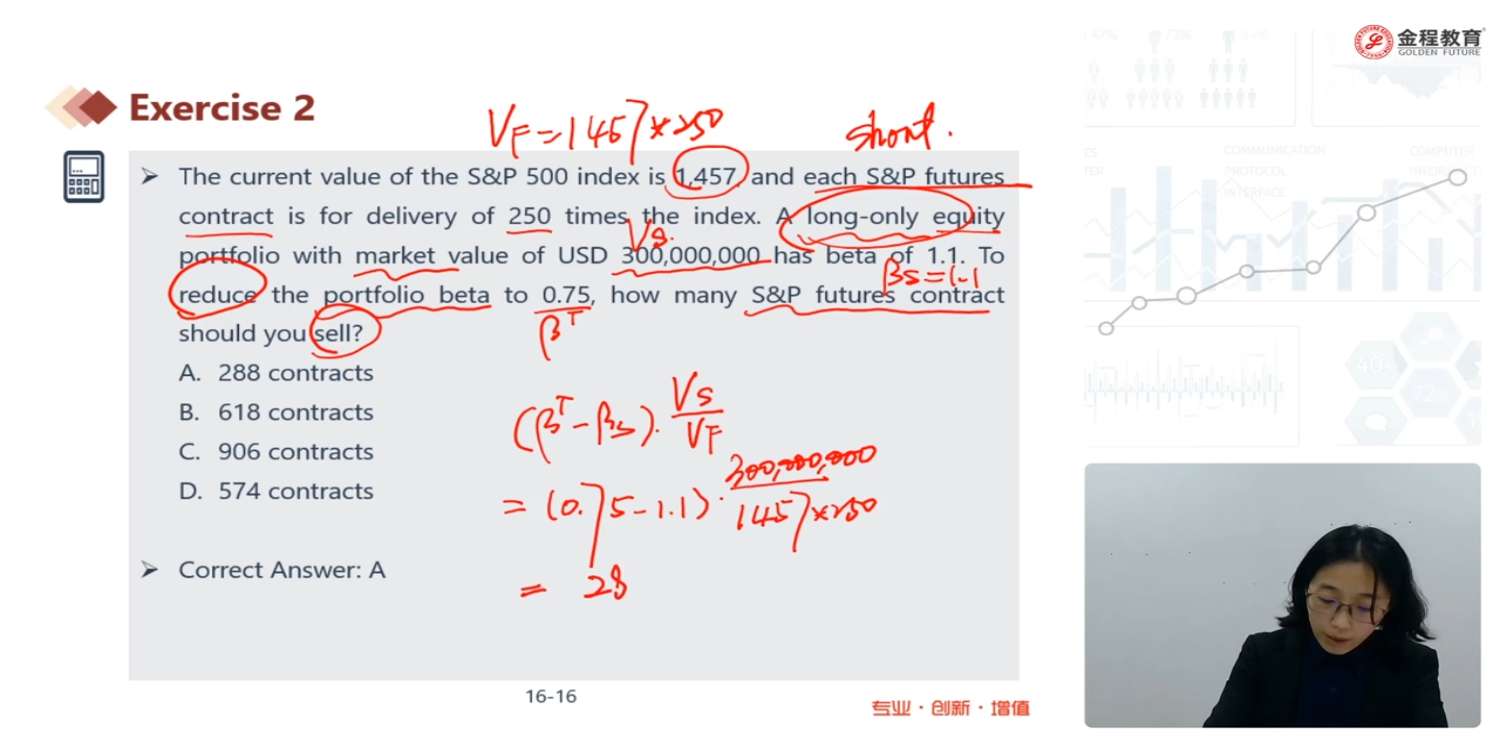 金程教育
GOLDEN FUTURE
Exercise 2
V_F = 1457*250
short.
The current value of the S&P 500 index is 1,457, and each S&P futures
contract is for delivery of 250 times the index. A long-only equity
Vs.
portfolio with market value of USD 300,000,000 has beta of 1.1. To
βs=1.1
reduce the portfolio beta to 0.75, how many S&P futures contract
β^T
should you sell?
A. 288 contracts
B. 618 contracts
C. 906 contracts
D. 574 contracts
(β^T - βs). Vs/VF
= (0.75-1.1). 300,000,000/1457*250
= 28
Correct Answer: A
16-16
专业·创新·增值
COMMUNICATION
PROTOCOL
COMPUTER